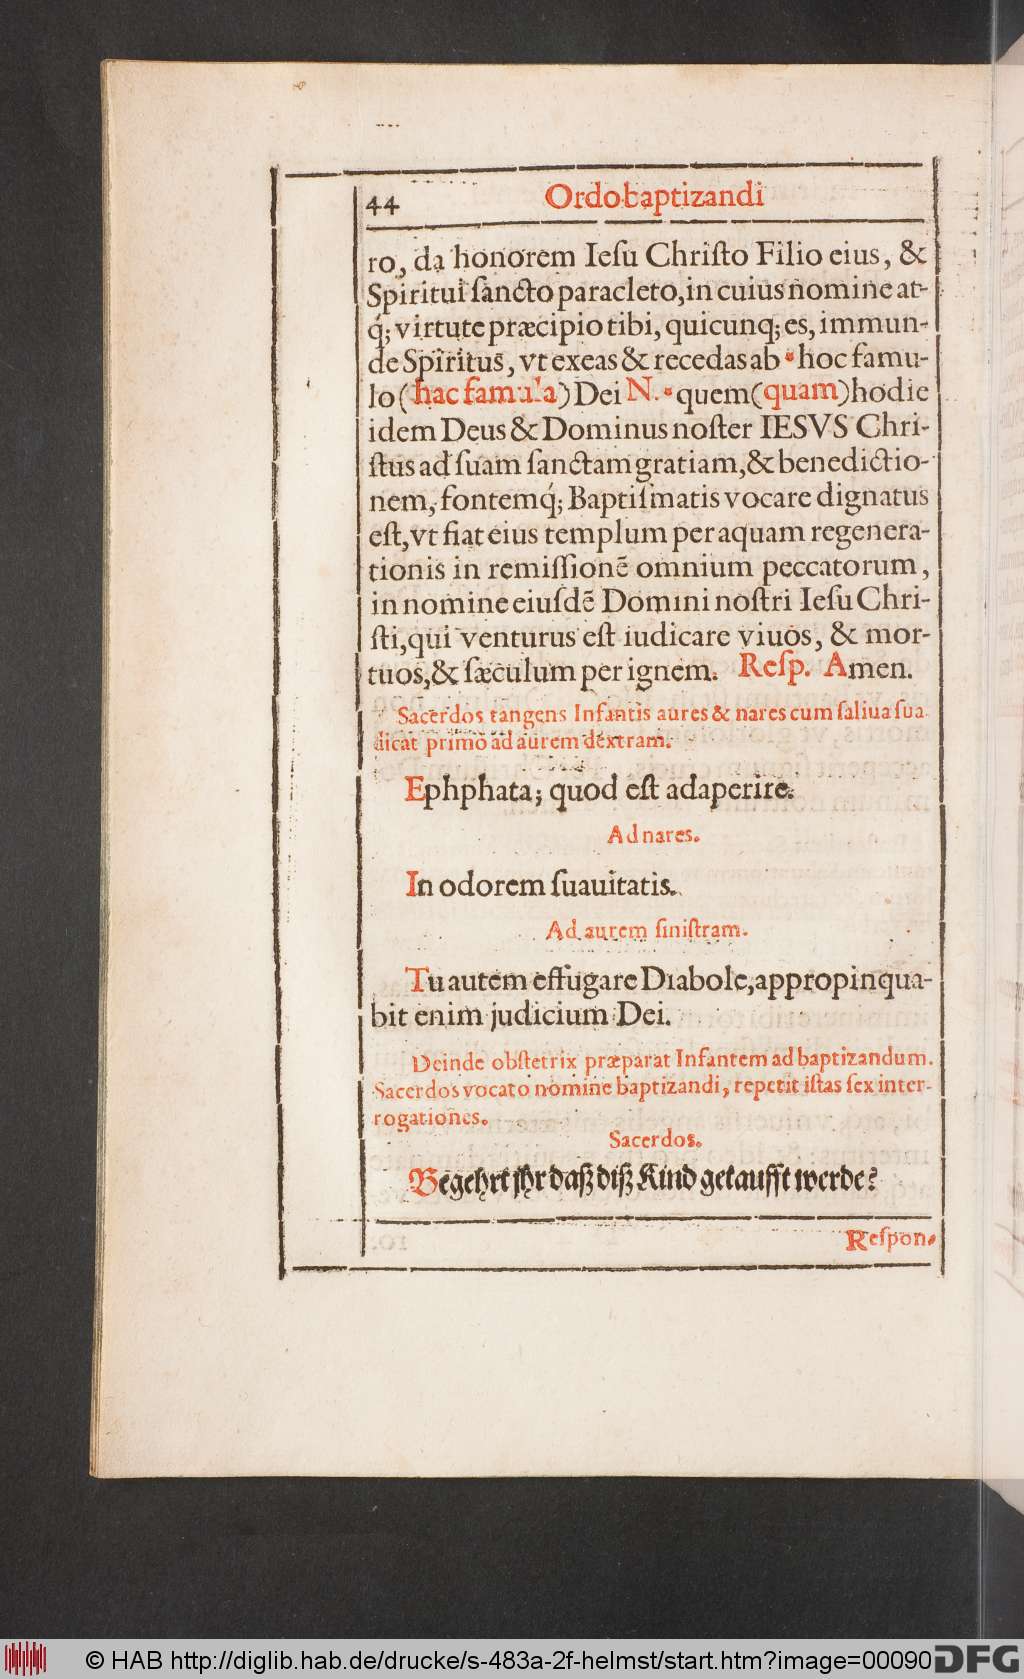 44 Ordo baptizandi
ro, da honorem Iesu Christo Filio eius, &
Spiritui sancto paracleto, in cuius nomine at-
q́; virtute præcipio tibi, quicunq; es, immun-
de Spiritus, vt exeas & recedas ab * hoc famu-
lo (hac famula) Dei N. * quem (quam) hodie
idem Deus & Dominus noster IESVS Chri-
stus ad suam sanctam gratiam, & benedictio-
nem, fontemq́; Baptismatis vocare dignatus
est, vt fiat eius templum per aquam regenera-
tionis in remissionē omnium peccatorum,
in nomine eiusdē Domini nostri Iesu Chri-
sti, qui venturus est iudicare viuos, & mor-
tuos, & sæculum per ignem. Resp. Amen.
Sacerdos tangens Infantis aures & nares cum saliua sua
dicat primò ad aurem dextram.
Ephphata; quod est adaperire.
Ad nares.
In odorem suauitatis.
Ad aurem sinistram.
Tu autem effugare Diabole, appropinqua-
bit enim judicium Dei.
Deinde obstetrix præparat Infantem ad baptizandum.
Sacerdos vocato nomine baptizandi, repetit istas sex inter-
rogationes.
Sacerdos.
Begehrt jhr daß diß Kind getaufft werde?
Respon.
© HAB http://diglib.hab.de/drucke/s-483a-2f-helmst/start.htm?image=00090 DFG